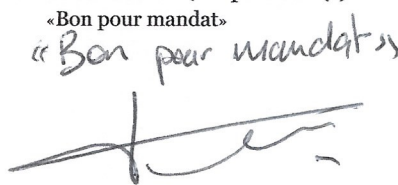 «Bon pour mandat»
«Bon pour mandat»